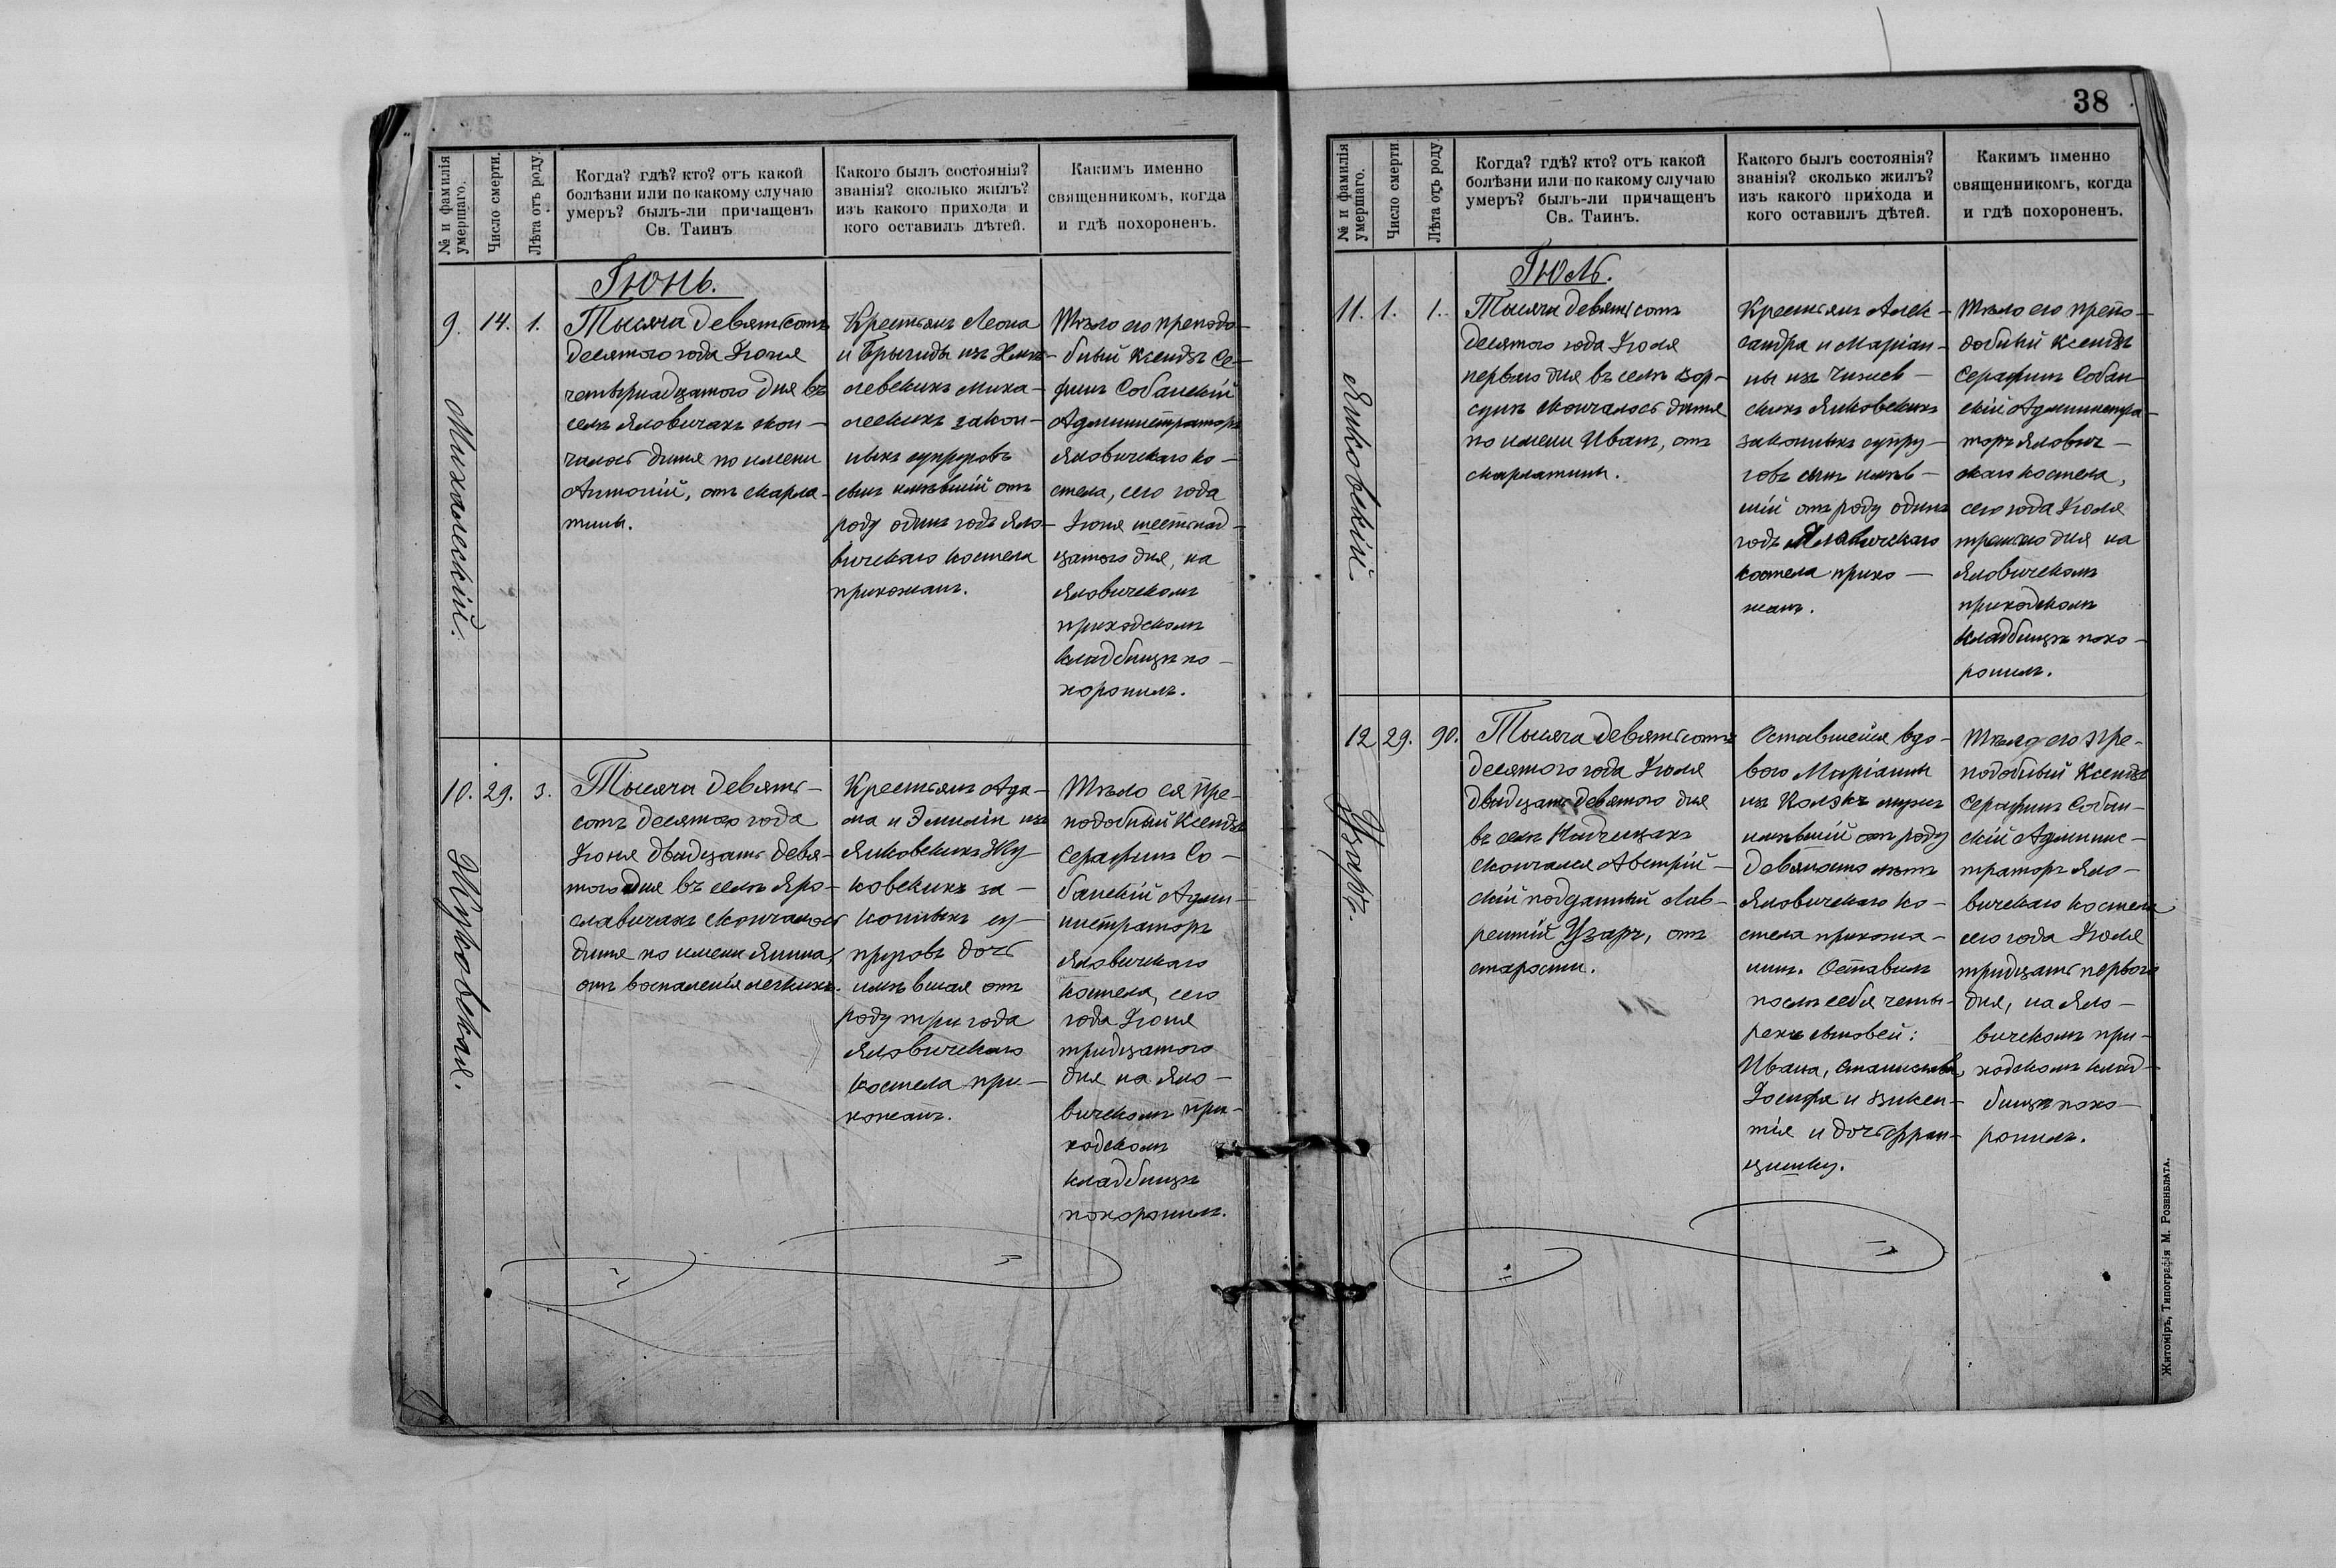 № и фамилія
умершаго.
Число смерти.
Лѣта отъ роду.
Когда? гдѣ? кто? отъ какой
болѣзни или по какому случаю
умеръ? былъ-ли причащенъ
Св. Таинъ
Какого былъ состоянія?
званія? сколько жилъ?
изъ какого прихода и
кого оставилъ дѣтей.
Какимъ именно
священникомъ, когда
и гдѣ похороненъ.
Іюнь.
9.
Михалескій.
14.
1.
Тысяча девятьсотъ
десятого года Іюня
четырнадцатого дня въ
селѣ Яловичахъ скон-
чалось дитя по имени
Антоній, отъ скарла-
тины.
Крестьянъ Леона
и Бригиды изъ
левскихъ Миха-
лескихъ закон-
ныхъ супруговъ
сынъ имѣвшій отъ
роду одинъ годъ Яло-
вичскаго костела
прихожанъ.
Тѣло его преподо-
бный Ксендзъ Се-
рафинъ Собанскій
Администраторъ
Яловичскаго ко-
стела, сего года
Іюня шестнад-
цатого дня, на
Яловичскомъ
приходскомъ
кладбищѣ по-
хоронилъ.
10.
Жуковская.
29.
3.
Тысяча девять-
сотъ десятого года
Іюня двадцать девя-
того дня въ селѣ Яро-
славичахъ скончалось
дитя по имени Янина,
отъ воспаленія легкихъ.
Крестьянъ Ада-
ма и Эмиліи изъ
Янковскихъ Жу-
ковскихъ за-
конныхъ су-
пруговъ дочь
имѣвшая отъ
роду три года
Яловичскаго
костела при-
хожанъ.
Тѣло ея Пре-
подобный Ксендзъ
Серафинъ Со-
банскій Адми-
нистраторъ
Яловичскаго
костела, сего
года Іюня
тридцатого
дня на Яло-
вичскомъ при-
ходскомъ
кладбищѣ
похоронилъ.
38
№ и фамилія
умершаго.
Число смерти.
Лѣта отъ роду.
Когда? гдѣ? кто? отъ какой
болѣзни или по какому случаю
умеръ? былъ-ли причащенъ
Св. Таинъ.
Какого былъ состоянія?
званія? сколько жилъ?
изъ какого прихода и
кого оставилъ дѣтей.
Какимъ именно
священникомъ, когда
и гдѣ похороненъ.
Іюль.
11.
Янковскій.
1.
1.
Тысяча девятьсотъ
десятого года Іюля
первого дня въ селѣ
скончалось дитя
по имени Иванъ, отъ
скарлатины.
Крестьянъ Алек-
сандра и Маріан-
ны изъ Чижев-
скихъ Янковскихъ
законныхъ супру-
говъ сынъ имѣв-
шій отъ роду одинъ
годъ Яловичскаго
костела прихо-
жанъ.
Тѣло его препо-
добный Ксендзъ
Серафинъ Собан-
скій Администра-
торъ Ялович-
скаго костела,
сего года Іюля
третьяго дня на
Яловичскомъ
приходскомъ
кладбищѣ похо-
ронилъ.
12
Узаръ.
29.
90.
Тысяча девятьсотъ
десятого года Іюля
двадцать девятого дня
въ селѣ Надчицахъ
скончался Австрій-
скій подданный Лав-
рентій Узаръ, отъ
старости.
Оставшейся вдо-
вою Маріанны
изъ мужъ
имѣвшій отъ роду
девяносто лѣтъ
Яловичскаго ко-
стела прихожа-
нинъ. Оставилъ
послѣ себя четы-
рехъ сыновей:
Ивана, Станислава,
Іосифа и Викен-
тія и дочь Фран-
цишку.
Тѣло его Пре-
подобный Ксендзъ
Серафинъ Собан-
скій Админис-
траторъ Яло-
вичскаго костела
сего года Іюля
тридцать первого
дня, на Яло-
вичскомъ при-
ходскомъ клад-
бищѣ похо-
ронилъ.
Житоміръ, Типографія М. Розенблата.